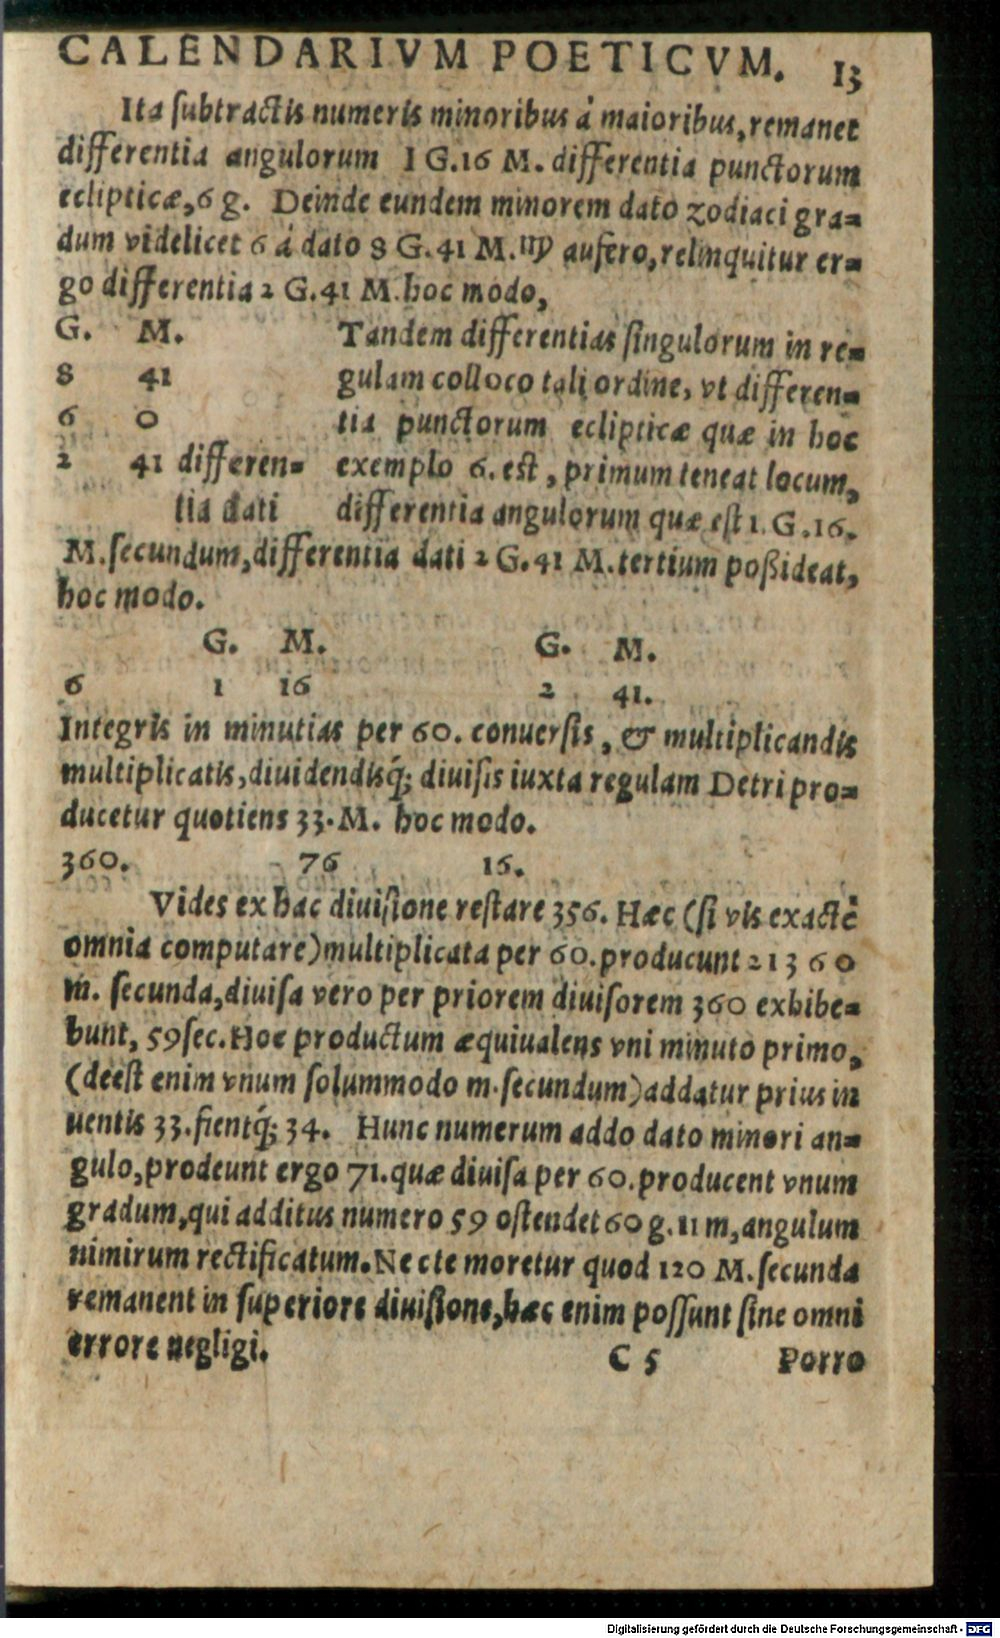 CALENDARIVM POETICVM. 13
Ita ſubtractis numeris minoribus à maioribus, remanet
differentia angulorum 1 G.16 M. differentia punctorum
eclipticæ, 6 g. Deinde eundem minorem dato zodiaci gra=
dum videlicet 6 á dato 8 G.41 M.♍ aufero, relinquitur er=
go differentia 2 G.41 M. hoc modo,
G. M. Tandem differentias ſingulorum in re=
8 41 gulam colloco tali ordine, vt differen=
6 0 tia punctorum eclipticæ quæ in hoc
2 41 differen= exemplo 6. eſt, primum teneat locum,
tia dati differentia angulorum quæ eſt 1. G.16.
M. ſecundum, differentia dati 2 G.41 M. tertium poßideat,
hoc modo.
G. M. G. M.
6 1 16 2 41.
Integris in minutias per 60. conuerſis, & multiplicandis
multiplicatis, diuidendisq́; diuiſis iuxta regulam Detri pro=
ducetur quotiens 33. M. hoc modo.
360. 76 15.
Vides ex hac diuiſione reſtare 356. Hæc (ſi vis exactè
omnia computare) multiplicata per 60. producunt 21360
m. ſecunda, diuiſa vero per priorem diuiſorem 360 exhibe=
bunt, 59 ſec. Hoc productum æquiualens vni minuto primo,
(deeſt enim vnum ſolummodo m. ſecundum) addatur prius in
uentis 33. fientq́; 34. Hunc numerum addo dato minori an=
gulo, prodeunt ergo 71. quæ diuiſa per 60. producent vnum
gradum, qui additus numero 59 oſtendet 60 g. 11 m, angulum
nimirum rectificatum. Nec te moretur quod 120 M. ſecunda
remanent in ſuperiore diuiſione, hæc enim poſſunt ſine omni
errore negligi. C 5 Porro
Digitalisierung gefördert durch die Deutsche Forschungsgemeinschaft - DFG